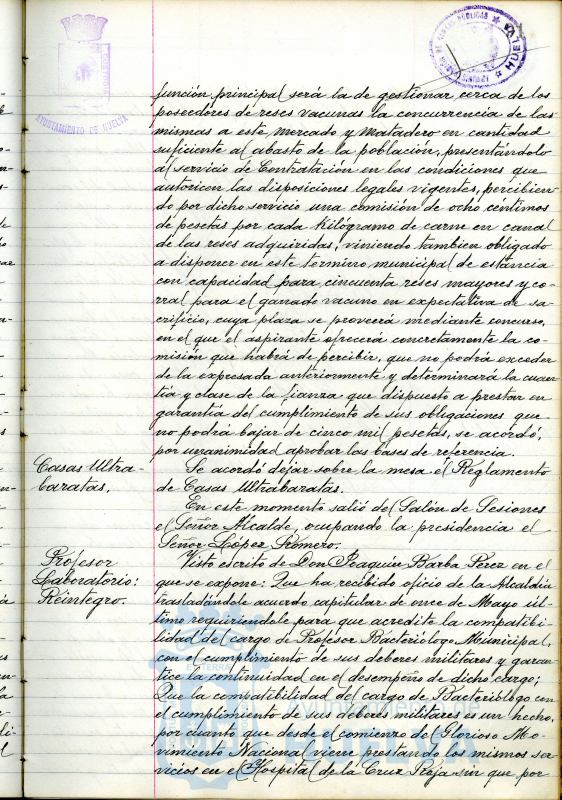 AYUNTAMIENTO DE HUELVA
HUELVA
función principal será la de gestionar cerca de los
poseedores de reses vacunas la concurrencia de las
mismas a este Mercado y Matadero en cantidad
suficiente al abasto de la población, presentándolo
al servicio de Contratación en las condiciones que
autoricen las disposiciones legales vigentes, percibien-
do por dicho servicio una comisión de ocho céntimos
de pesetas por cada Kilógramo de carne en canal
de las reses adquiridas, viniendo tambien obligado
a disponer en este término municipal de estancia
con capacidad para cincuenta reses mayores y co-
rral para el ganado vacuno en expectativa de sa-
crificio, cuya plaza se proveerá mediante concurso,
en el que el aspirante ofrecerá concretamente la co-
misión que habrá de percibir, que no podrá exceder
de la expresada anteriormente y determinará la cuan-
tía y clase de la fianza que dispuesto a prestar en
garantía del cumplimiento de sus obligaciones que
no podrá bajar de cinco mil pesetas, se acordó,
por unanimidad aprobar las bases de referencia.
Casas Ultra-
baratas.
Se acordó dejar sobre la mesa el Reglamento
de Casas Ultrabaratas.
En este momento salió del Salón de Sesiones
el Señor Alcalde, ocupando la presidencia el
Señor López Romero.
Profesor
Laboratorio:
Reintegro.
Visto escrito de Don Joaquín Barba Perez en el
que se expone: Que ha recibido oficio de la Alcaldía
trasladándole acuerdo capitular de once de Mayo úl-
timo requiriendole para que acredite la compatibi-
lidad del cargo de Profesor Bacteriólogo Municipal,
con el cumplimiento de sus deberes militares y garan-
tice la continuidad en el desempeño de dicho cargo;
Que la compatibilidad del cargo de Bacteriólogo con
el cumplimiento de sus deberes militares es un hecho,
por cuanto que desde el comienzo del Glorioso Mo-
vimiento Nacional viene prestando los mismos ser-
vicios en el Hospital de la Cruz Roja sin que por
Ayuntamiento de
HUELVA